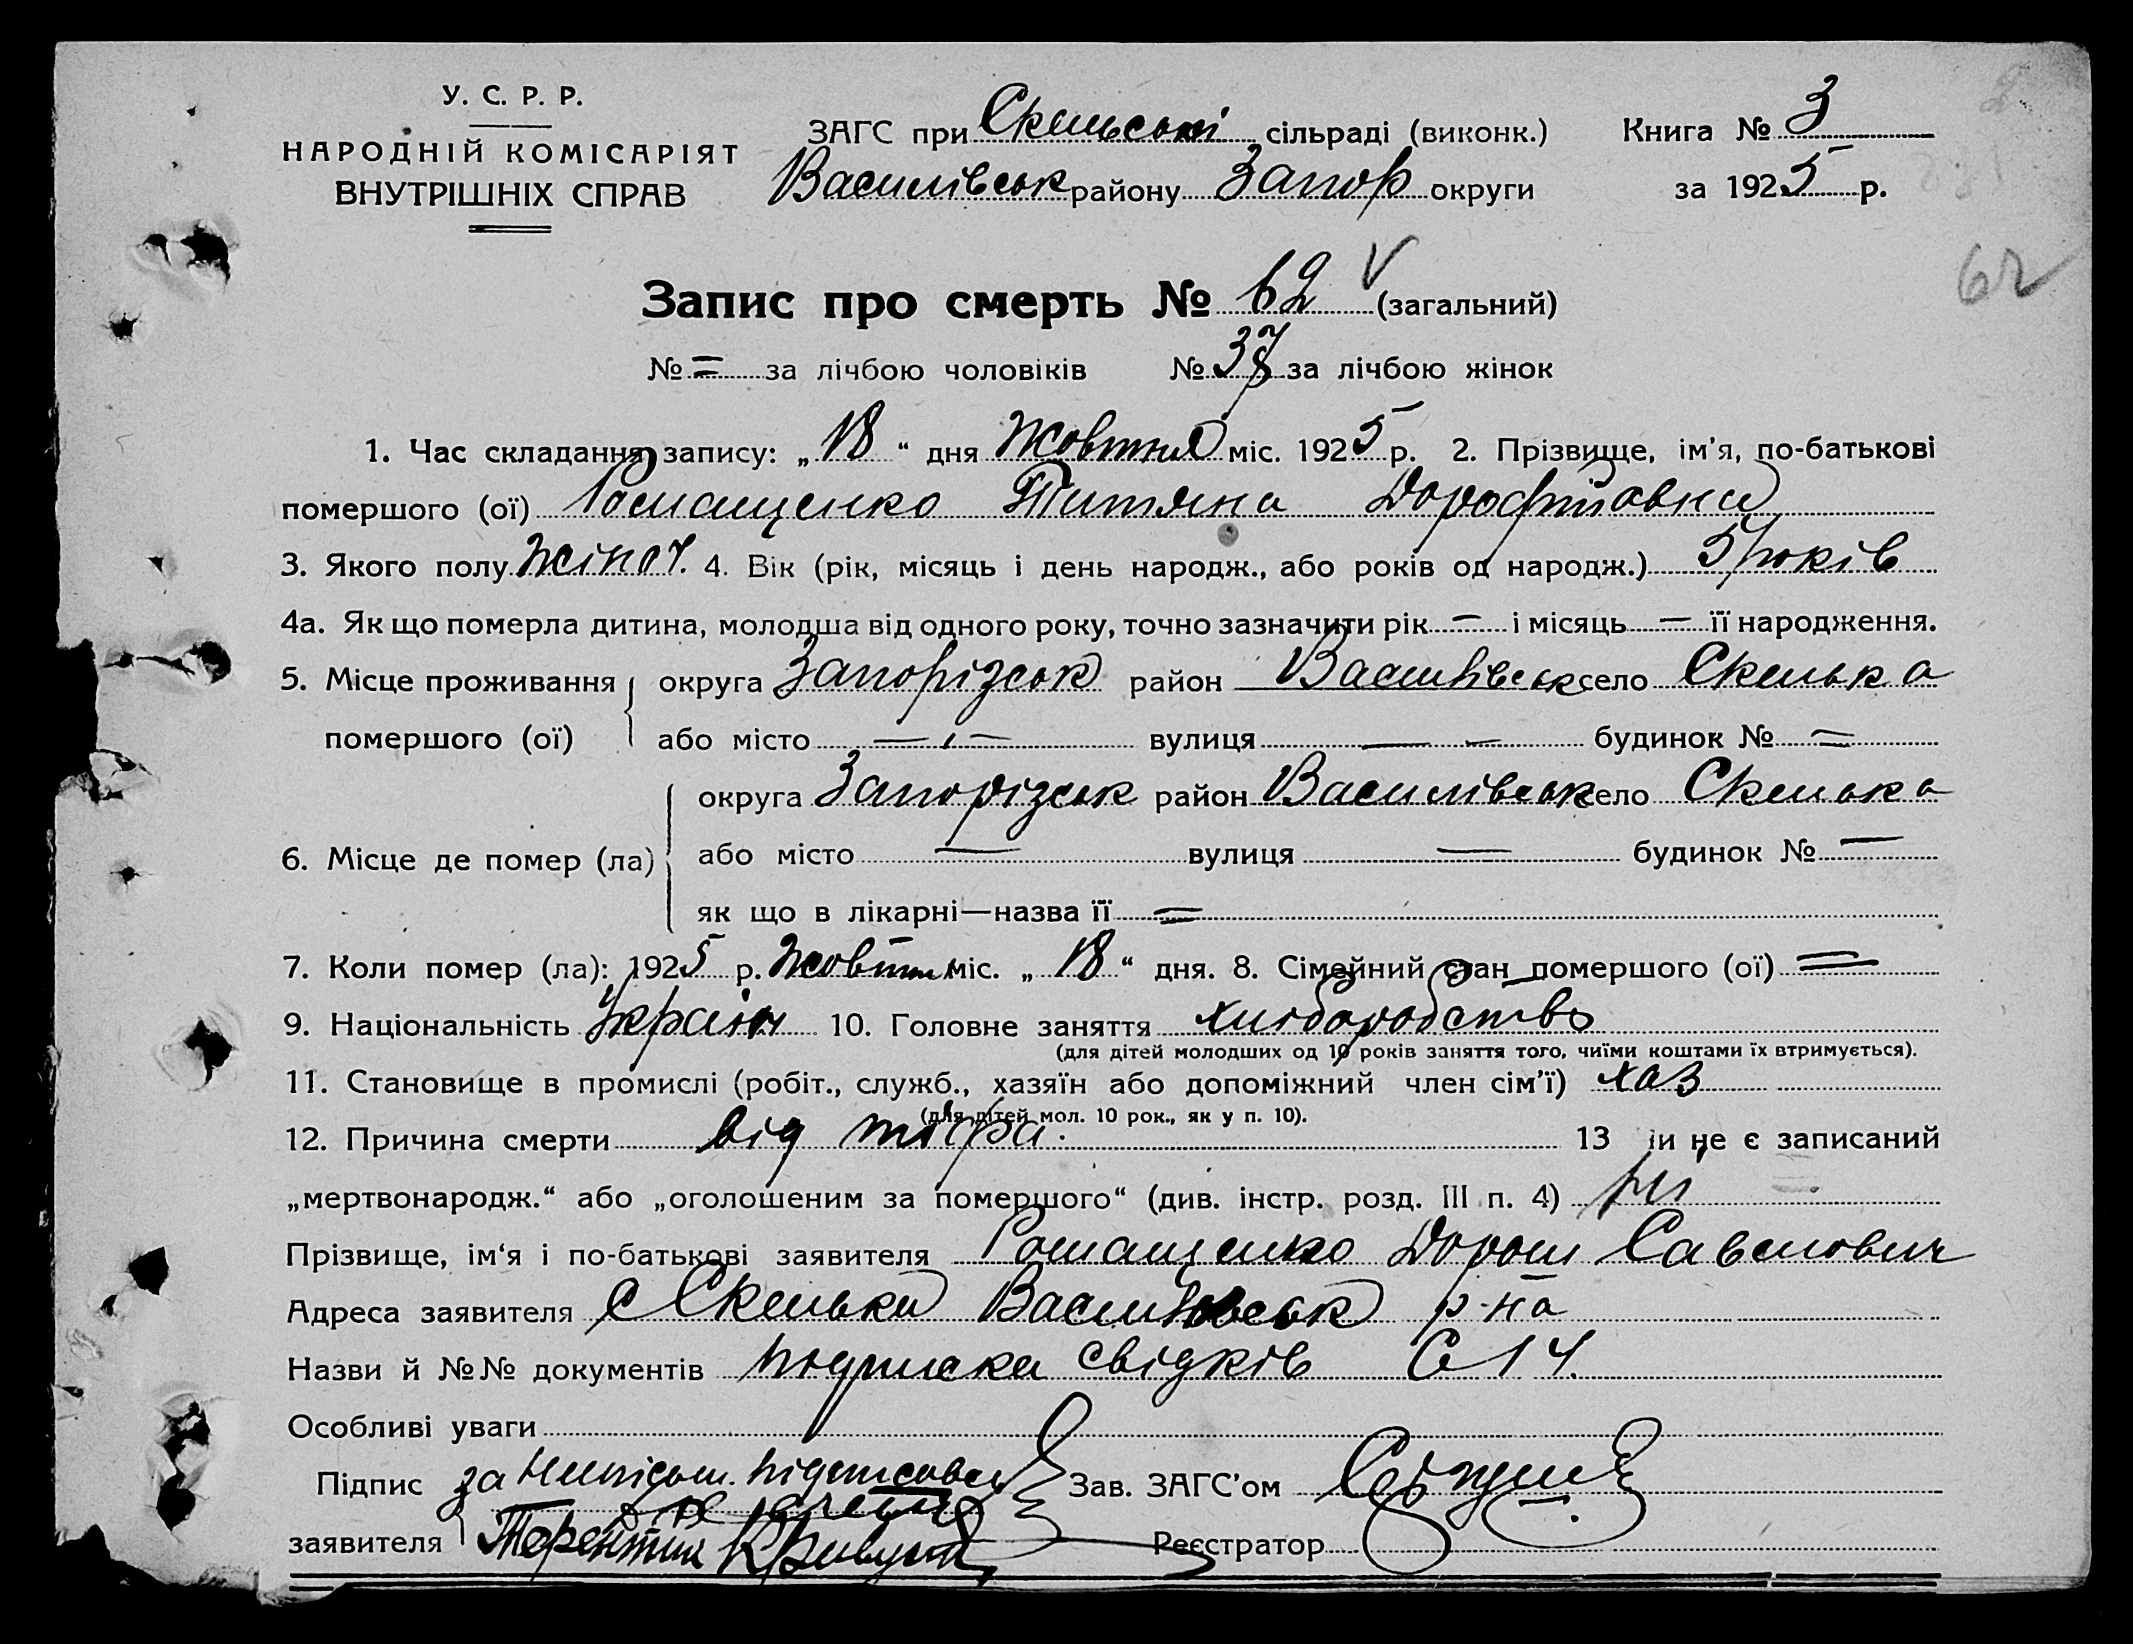 У. С. Р. Р.
НАРОДНІЙ КОМІСАРІЯТ
ВНУТРІШНІХ СПРАВ
ЗАГС при Скельській сільраді (виконк.)
Василівськ району Запор округи
Книга № 3
за 1925 р.
62
Запис про смерть № 62 (загальний)
№ = за лічбою чоловіків № 37 за лічбою жінок
1. Час складання запису: „18“ дня Жовтня міс. 1925 р. 2. Прізвище, ім'я, по-батькові
помершого (ої) Ромащенко Титяна Дорофтіовна
3. Якого полу жіноч. 4. Вік (рік, місяць і день народж., або років од народж.) 5 років
4а. Як що померла дитина, молодша від одного року, точно зазначити рік — і місяць — її народження.
5. Місце проживання округа Запорізськ район Василівськ село Скелька
помершого (ої) або місто — вулиця — — будинок № =
округа Запорізськ район Василівськ село Скелька
6. Місце де помер (ла) або місто — вулиця — будинок № —
як що в лікарні—назва її =
7. Коли помер (ла): 1925 р. Жовтня міс. „18“ дня. 8. Сімейний стан помершого (ої) =
9. Національність Україн 10. Головне заняття хліборобство
(для дітей молодших од 10 років заняття того, чиїми коштами їх втримується).
11. Становище в промислі (робіт., служб., хазяїн або допоміжний член сім'ї) хаз
(для дітей мол. 10 рок., як у п. 10).
12. Причина смерти від тіфа. 13 чи не є записаний
„мертвонародж.“ або „оголошеним за помершого“ (див. інстр. розд. III п. 4) ні
Прізвище, ім'я і по-батькові заявителя Ромащенко Дорош Савелович
Адреса заявителя с Скельки Василівськ р-на
Назви й №№ документів підписка свідків
Особливі уваги
Підпис за
заявителя Терентий
Зав. ЗАГС'ом
Реєстратор